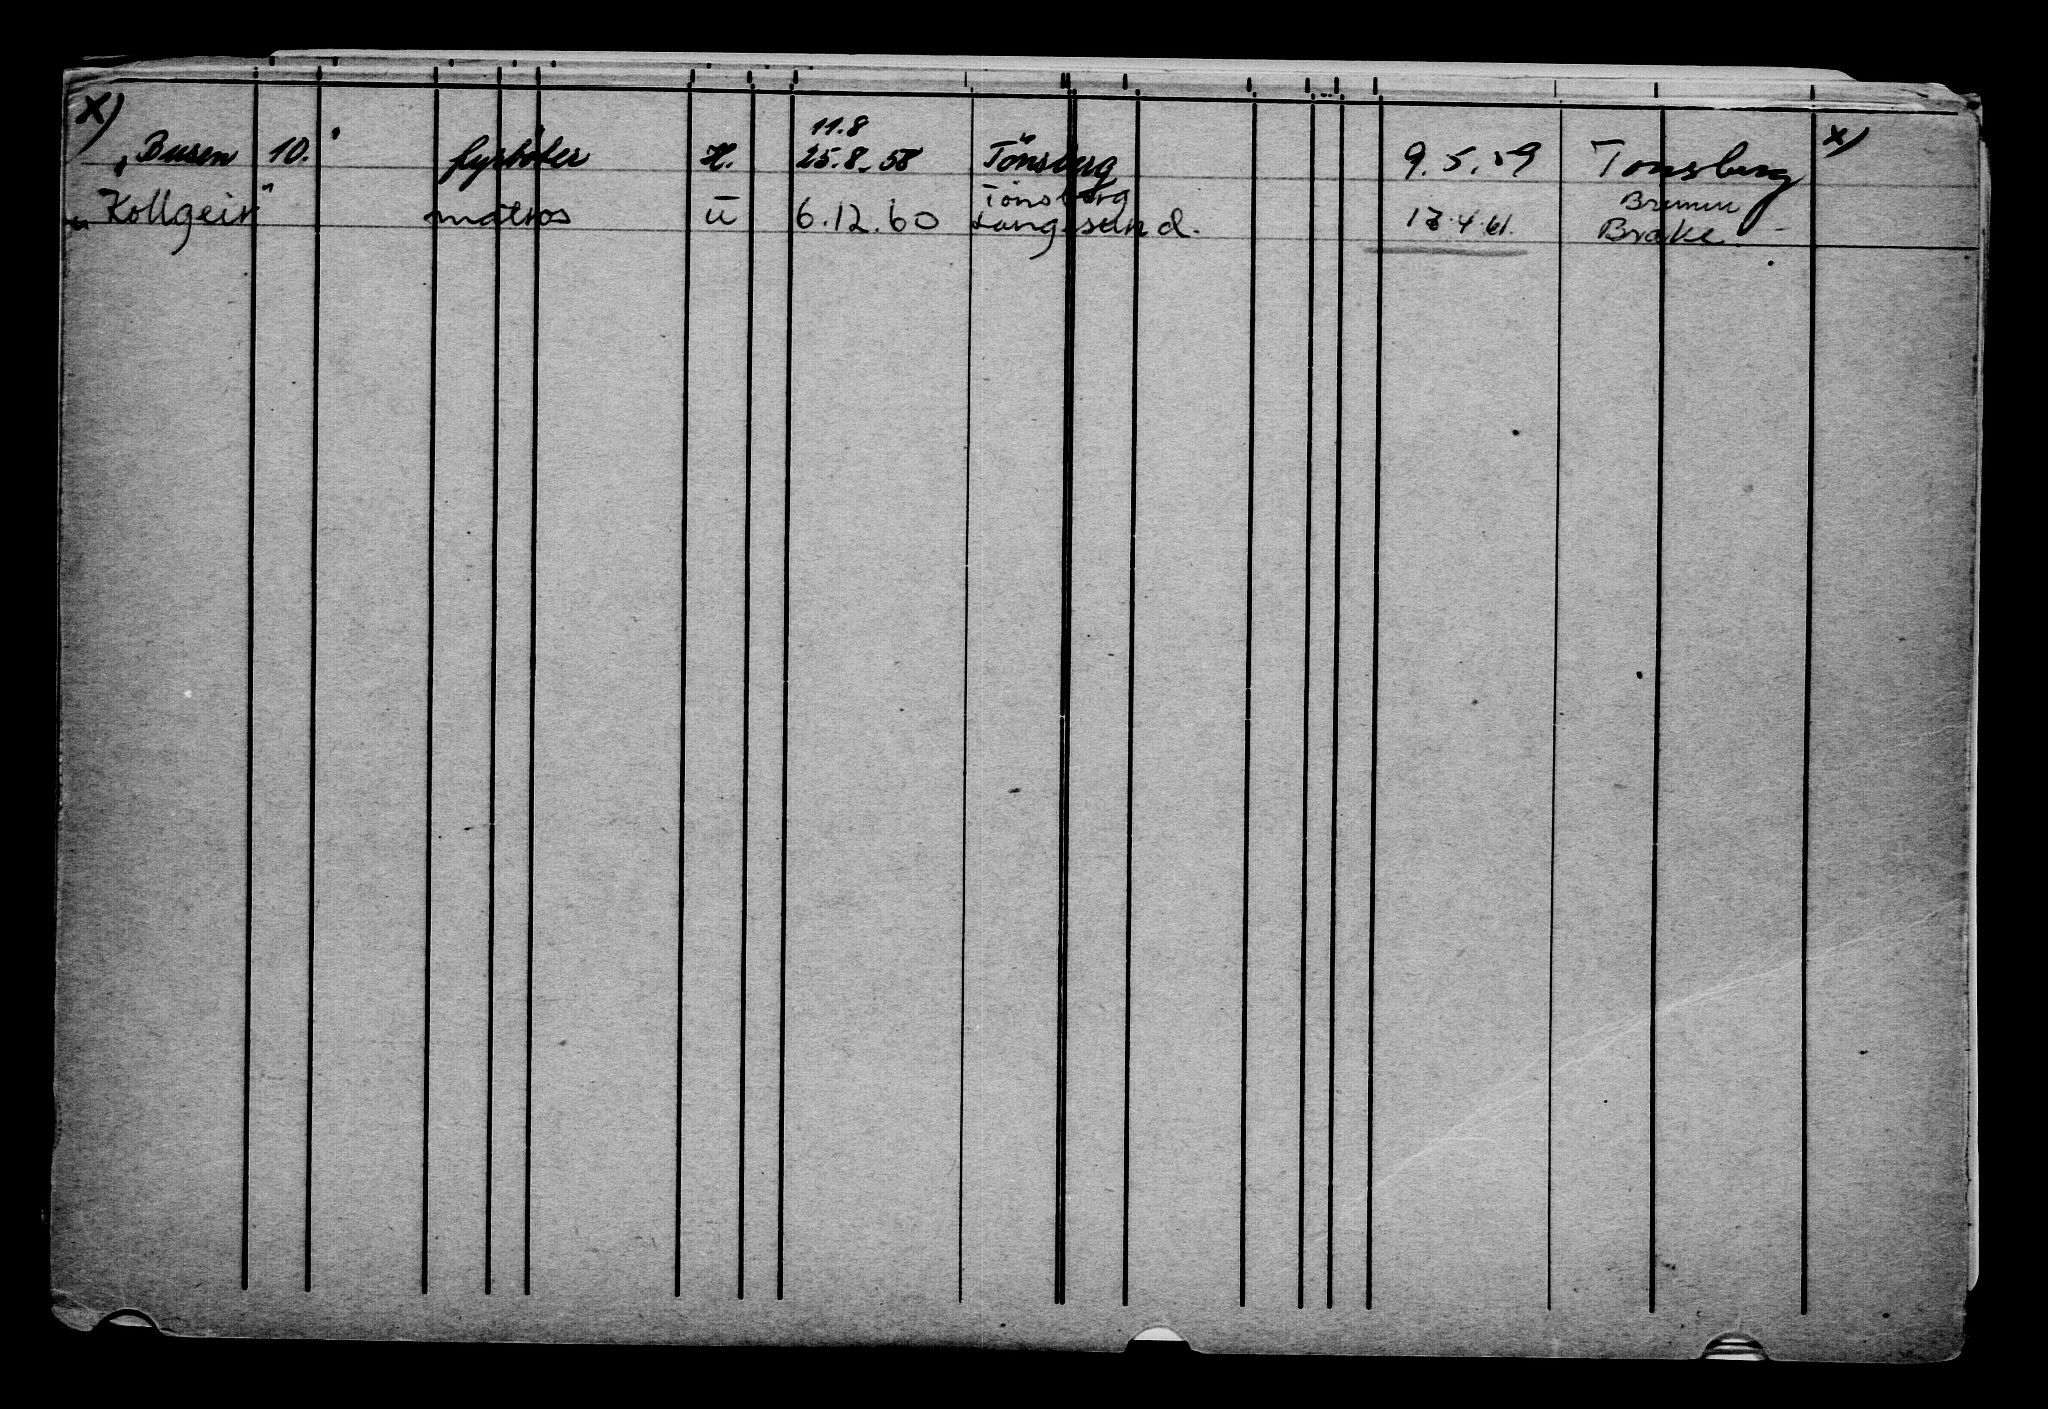 x) x)
11.8
"Busen 10." fyrbøter H. 25.8.58 Tönsberg 9.5.59 Tønsberg
Tönsberg Bremen
"Kollgeir" matros u 6.12.60 Langesund. 4.61. Brake